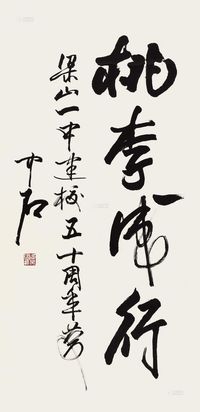 桃李成行
梁山一中建校五十周年
中石